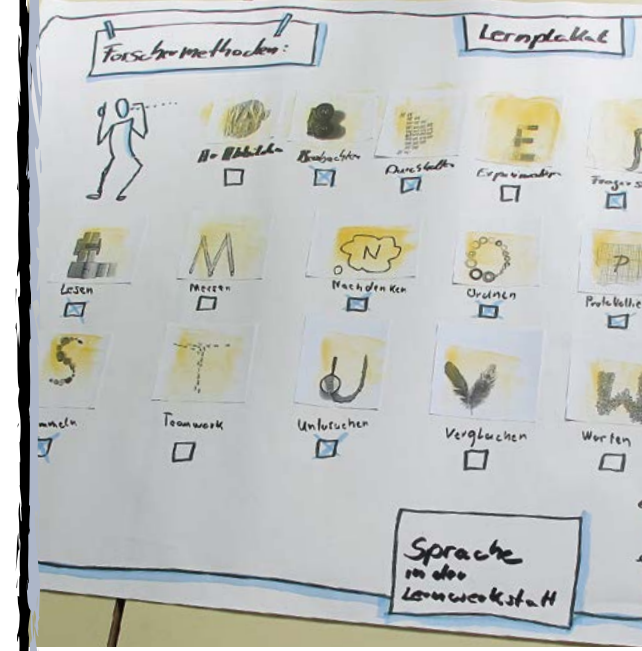 Forschermethoden:
Lernplakat
A
B
D
E
Abbilden
Beobachten
Darstellen
Experimentieren
L
M
N
O
P
Lesen
Messen
Nachdenken
Ordnen
Protokollie
S
T
U
V
W
mmeln
Teamwork
Untersuchen
Vergleichen
Warten
Sprache
in der
Lernwerkstatt